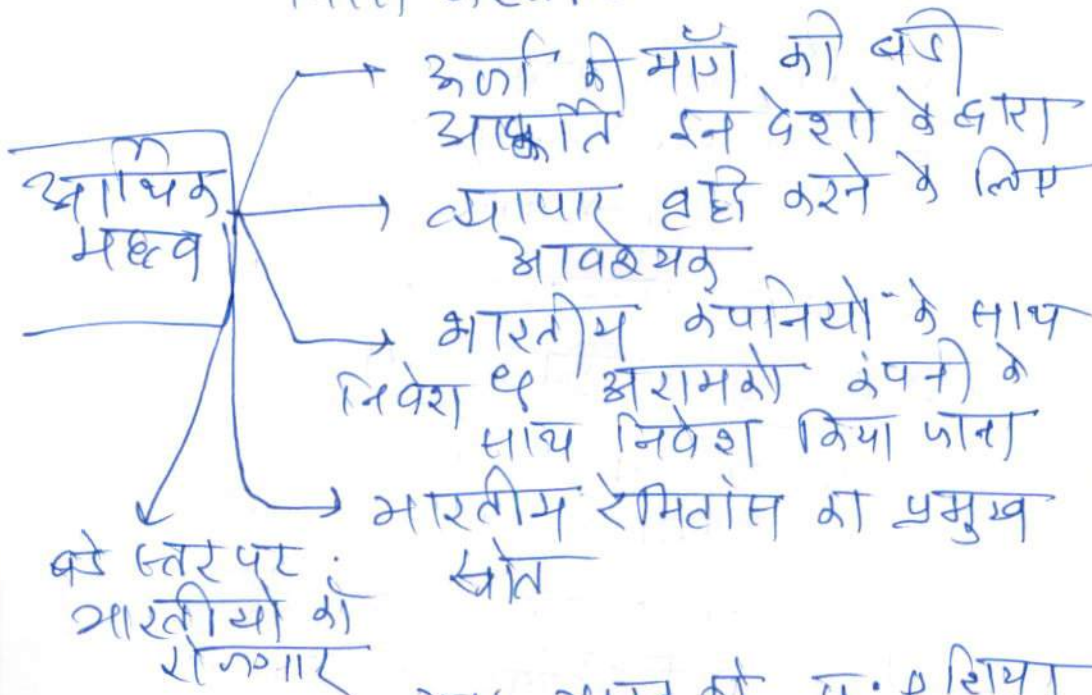 ऊर्जा की माँग की बडी
आपूर्ति इन देशो के द्वारा
आर्थिक
महत्व
व्यापार वृद्धी करने के लिए
आवश्यक
भारतीय कंपनियों के साथ
निवेश अरामको कंपनी के
साथ निवेश किया जाना
भारतीय रेमिटांस का प्रमुख
स्रोत
बडे स्तर पर
भारतीयो को
रोजगार
को प. एशिया